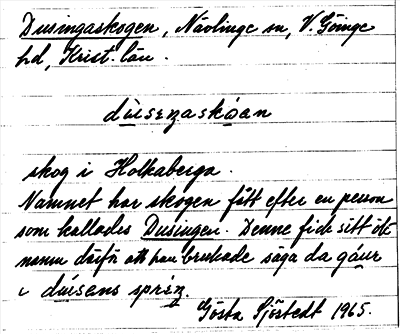 Dusingaskogen, Nävlinge sn, V. Göinge
hd, Krist. län.
dùseŋaskóan
skog i Holkaberga.
Namnet har skogen fått efter en person
som kallades Dusingen. Denne fick sitt ök-
namn därför att han brukade säga da gáur
i dúisens spriŋ.
Gösta Sjöstedt 1965.